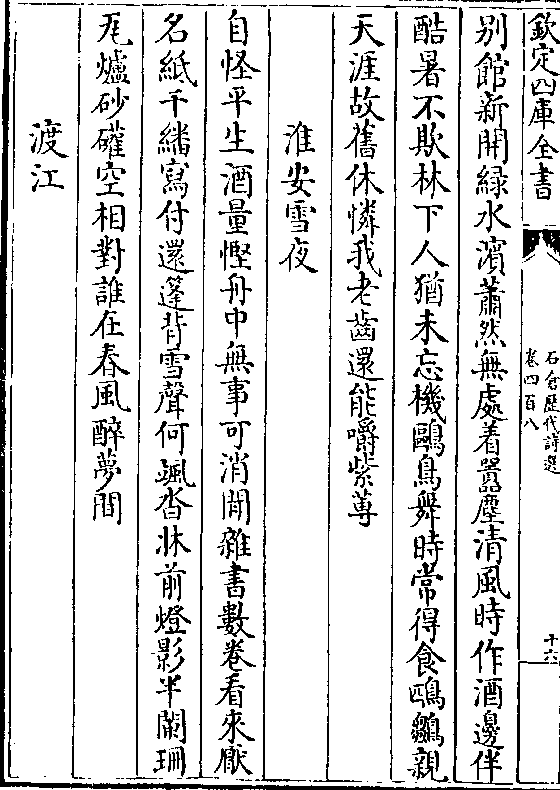 欽定四庫全書
石倉歷代詩選
卷四百八
十六
别館新開緑水濱蕭然無處着囂塵清風時作酒邊伴
酷暑不欺林下人猶未忘機鷗鳥舞時常得食鴟雛親
天涯故舊休憐我老齒還能嚼紫蓴
淮安雪夜
自怪平生酒量慳舟中無事可消閒雜書數卷看來厭
名紙千繙寫付還篷背雪聲何颯沓牀前燈影半闌珊
瓦爐砂礶空相對誰在春風醉夢間
渡江